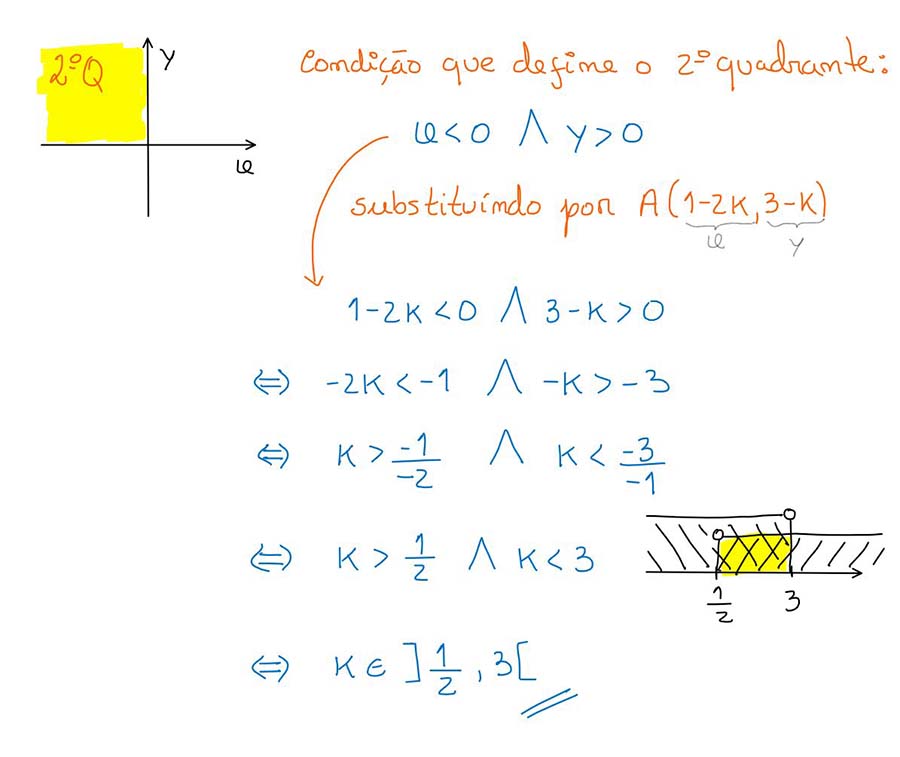 2ºQ
y
x
Condição que define o 2º quadrante:
x<0 ∧ y>0
substituíndo por A(1-2K, 3-K)
x y
1-2K<0 ∧ 3-K>0
⇔ -2K<-1 ∧ -K>-3
⇔ K>-1/-2 ∧ K<-3/-1
⇔ K>1/2 ∧ K<3
1/2 3
⇔ K∈]1/2, 3[